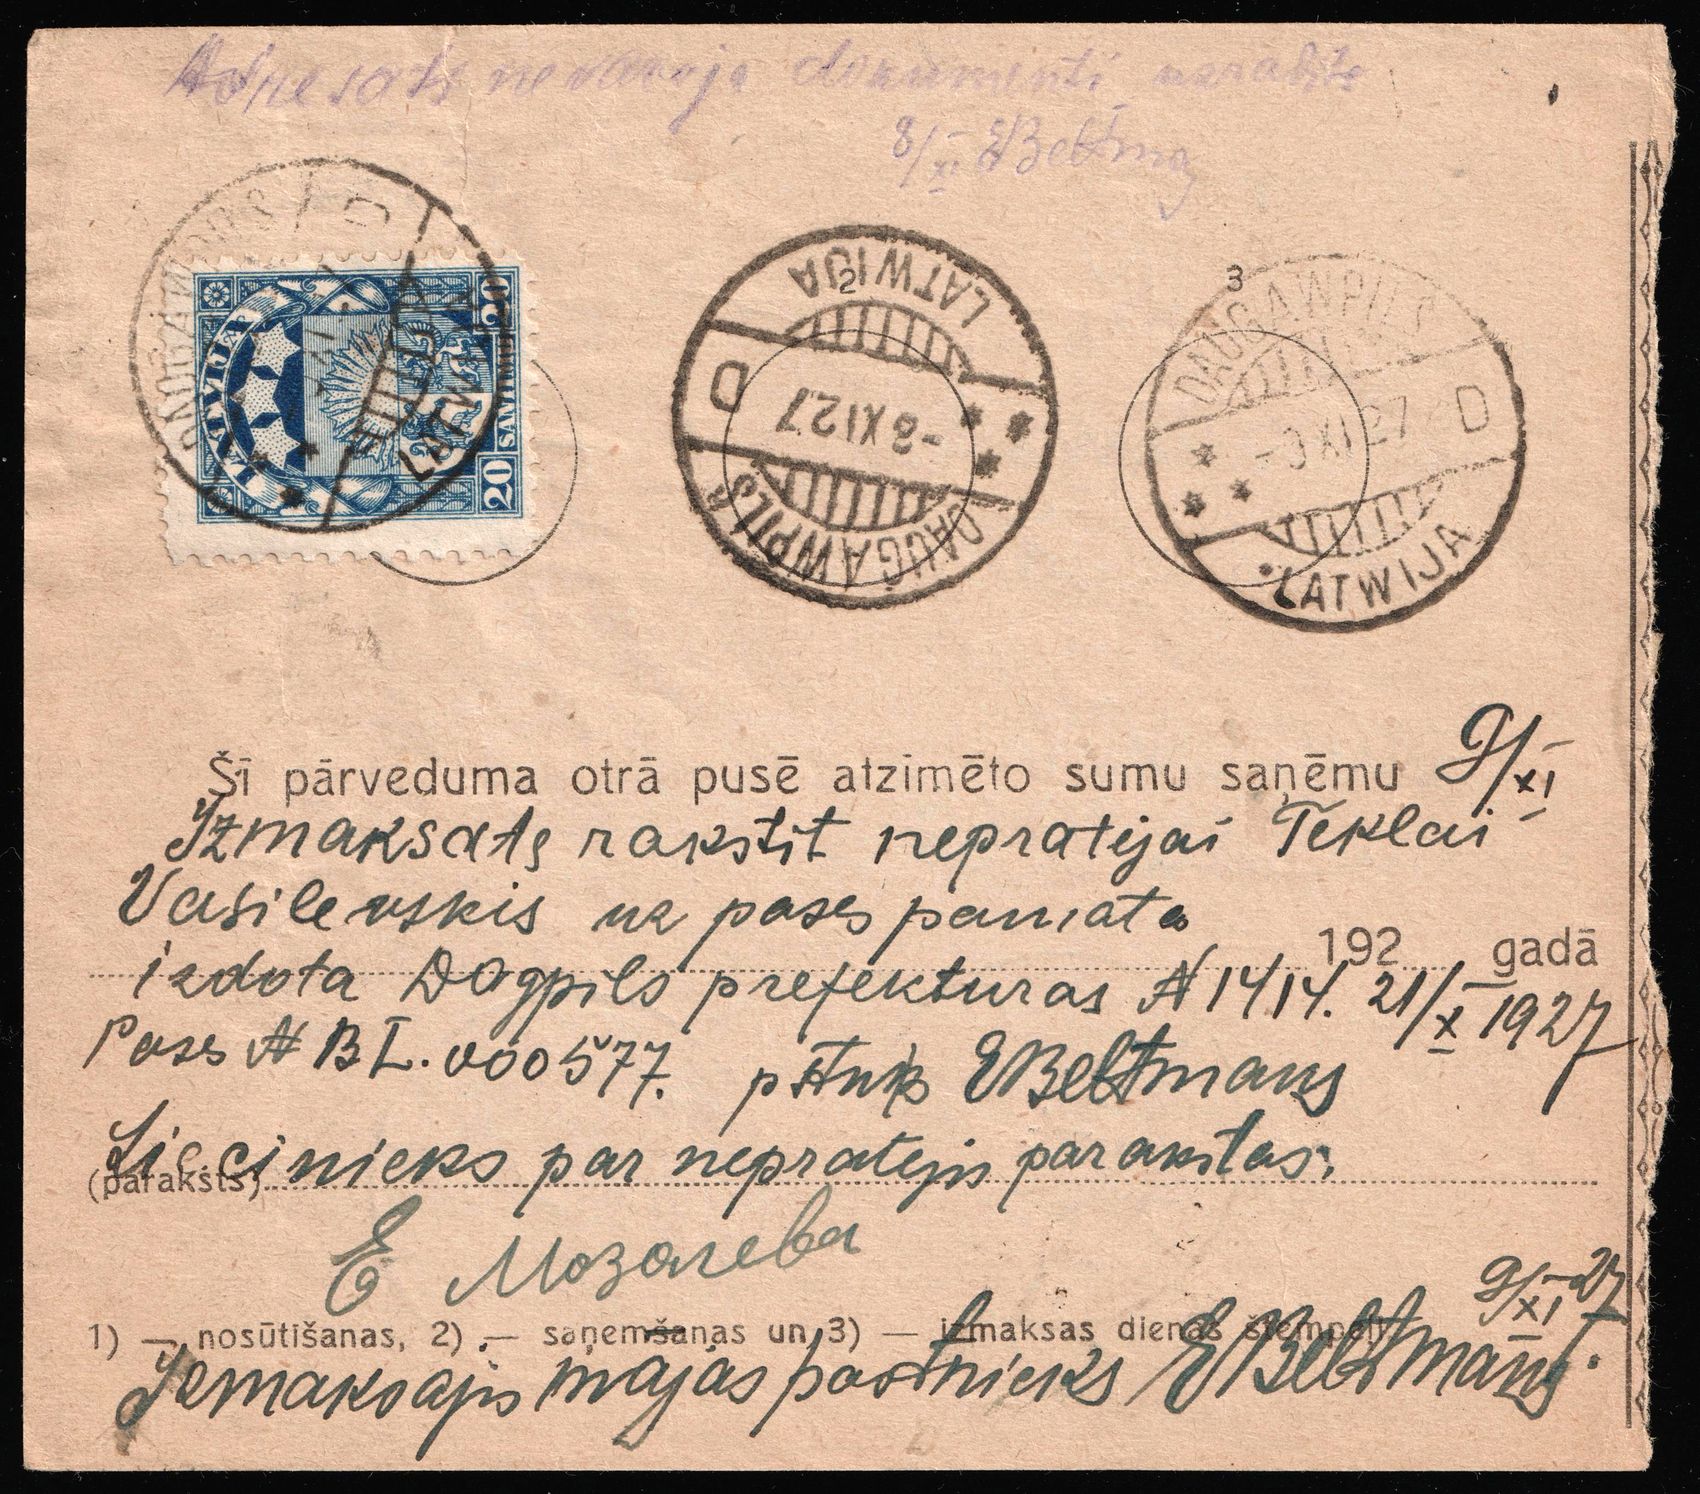 Adresats nevarēja dokumenti uzrādīt
8/XI EBeltmans
DAUGAWPILS D
LATWIJA
LATVIJA
20 20
SANTIMU
2
LATWIJA
D -8 XI 27
DAUGAWPILS
3
DAUGAWPILS
-9 XI 27 D
LATWIJA
Šī pārveduma otrā pusē atzīmēto sumu saņēmu 9/XI
Izmaksats rakstit nepratejai Teklai
Vasilevskis uz pases pamata
192 gadā
izdota Dogpils prefekturas N 1414. 21/X 1927
Pases N BL. 000577. pstnks EBeltmans
Liecinieks par nepratejis parakstas:
(paraksts)
Е Мозалева
9/XI 27
1) — nosūtīšanas, 2) — saņemšanas un 3) — izmaksas dienas štempeļi.
Izmaksajis majas pastnieks EBeltmans.